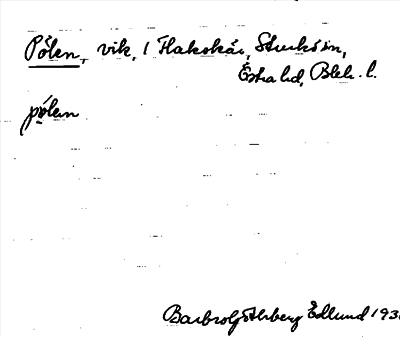 Pölen, vik, i Flakskär, Sturkö sn,
Östra hd, Blek. l.
pölen
Barbro Edlund 193